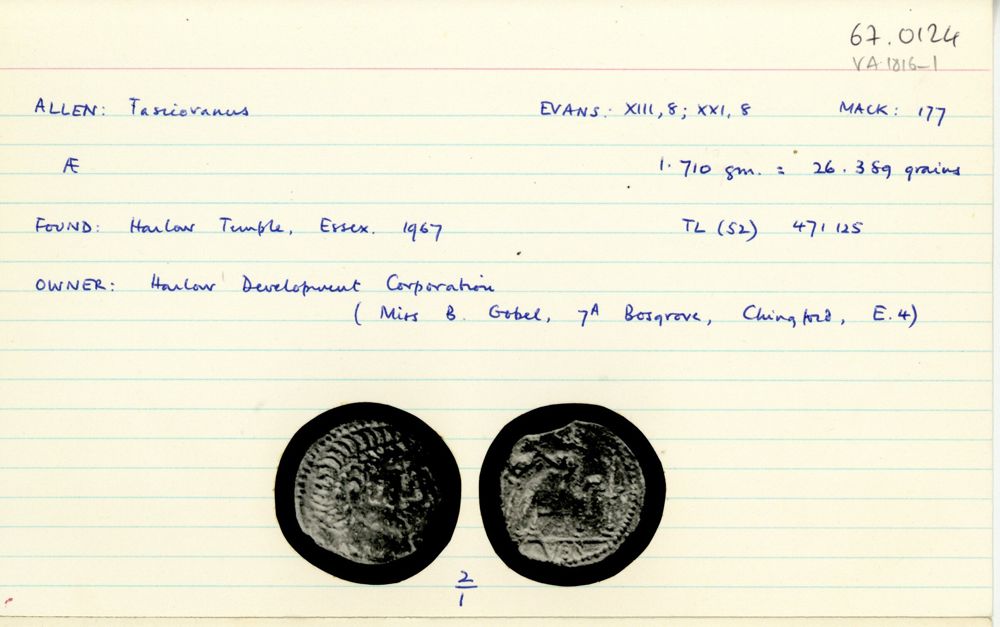 67.0124
VA 1816-1
ALLEN: Tasciovanus EVANS: XIII, 8; XXI, 8 MACK: 177
Æ 1.710 gm. = 26.389 grains
FOUND: Harlow Temple, Essex. 1967 TL (52) 471 125
OWNER: Harlow Development Corporation
(Miss B. Gobel, 7A Bosgrove, Chingford, E.4)
VER
2
1